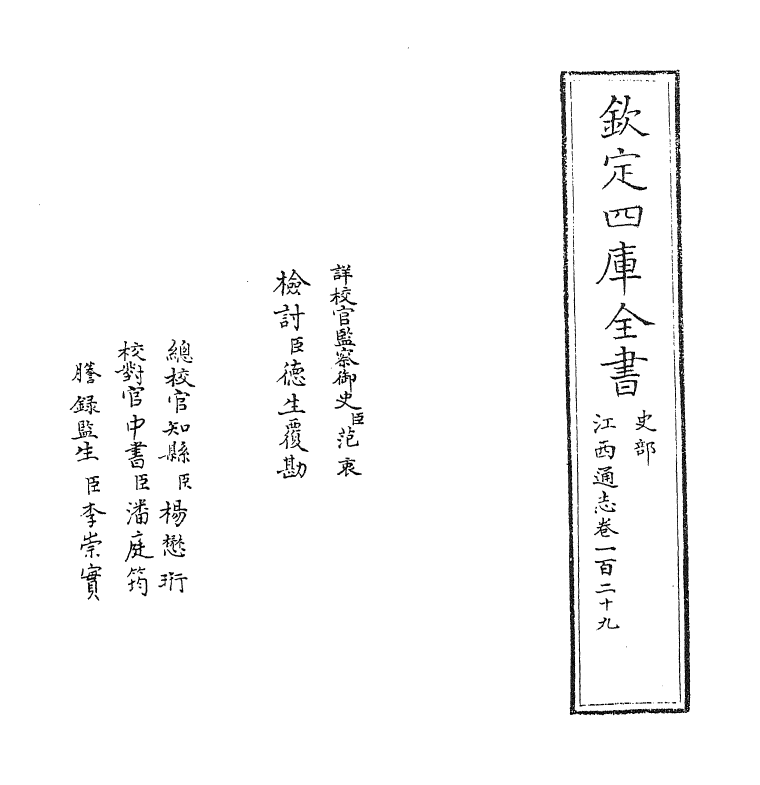 欽定四庫全書
史部
江西通志卷一百二十九
詳校官監察御史臣范衷
檢討臣德生覆勘
總校官知縣臣楊懋珩
校對官中書臣潘庭筠
謄錄監生臣李崇實